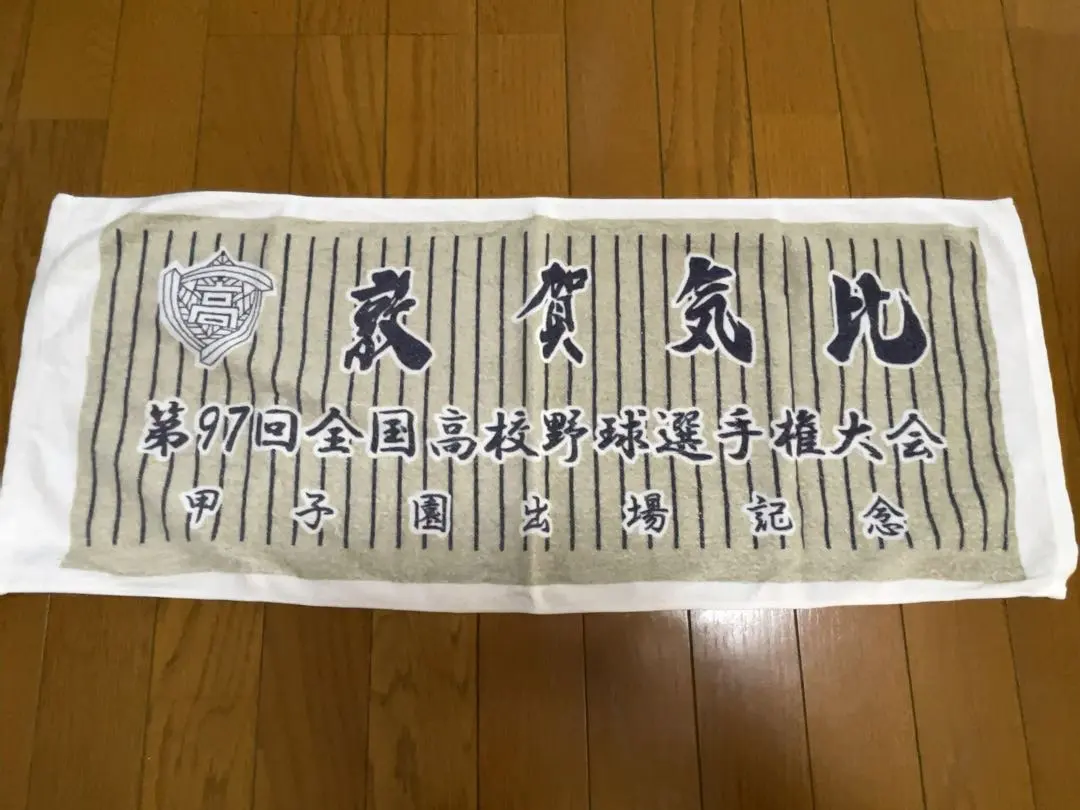 高
敦賀気比
第97回全国高校野球選手権大会
甲子園出場記念